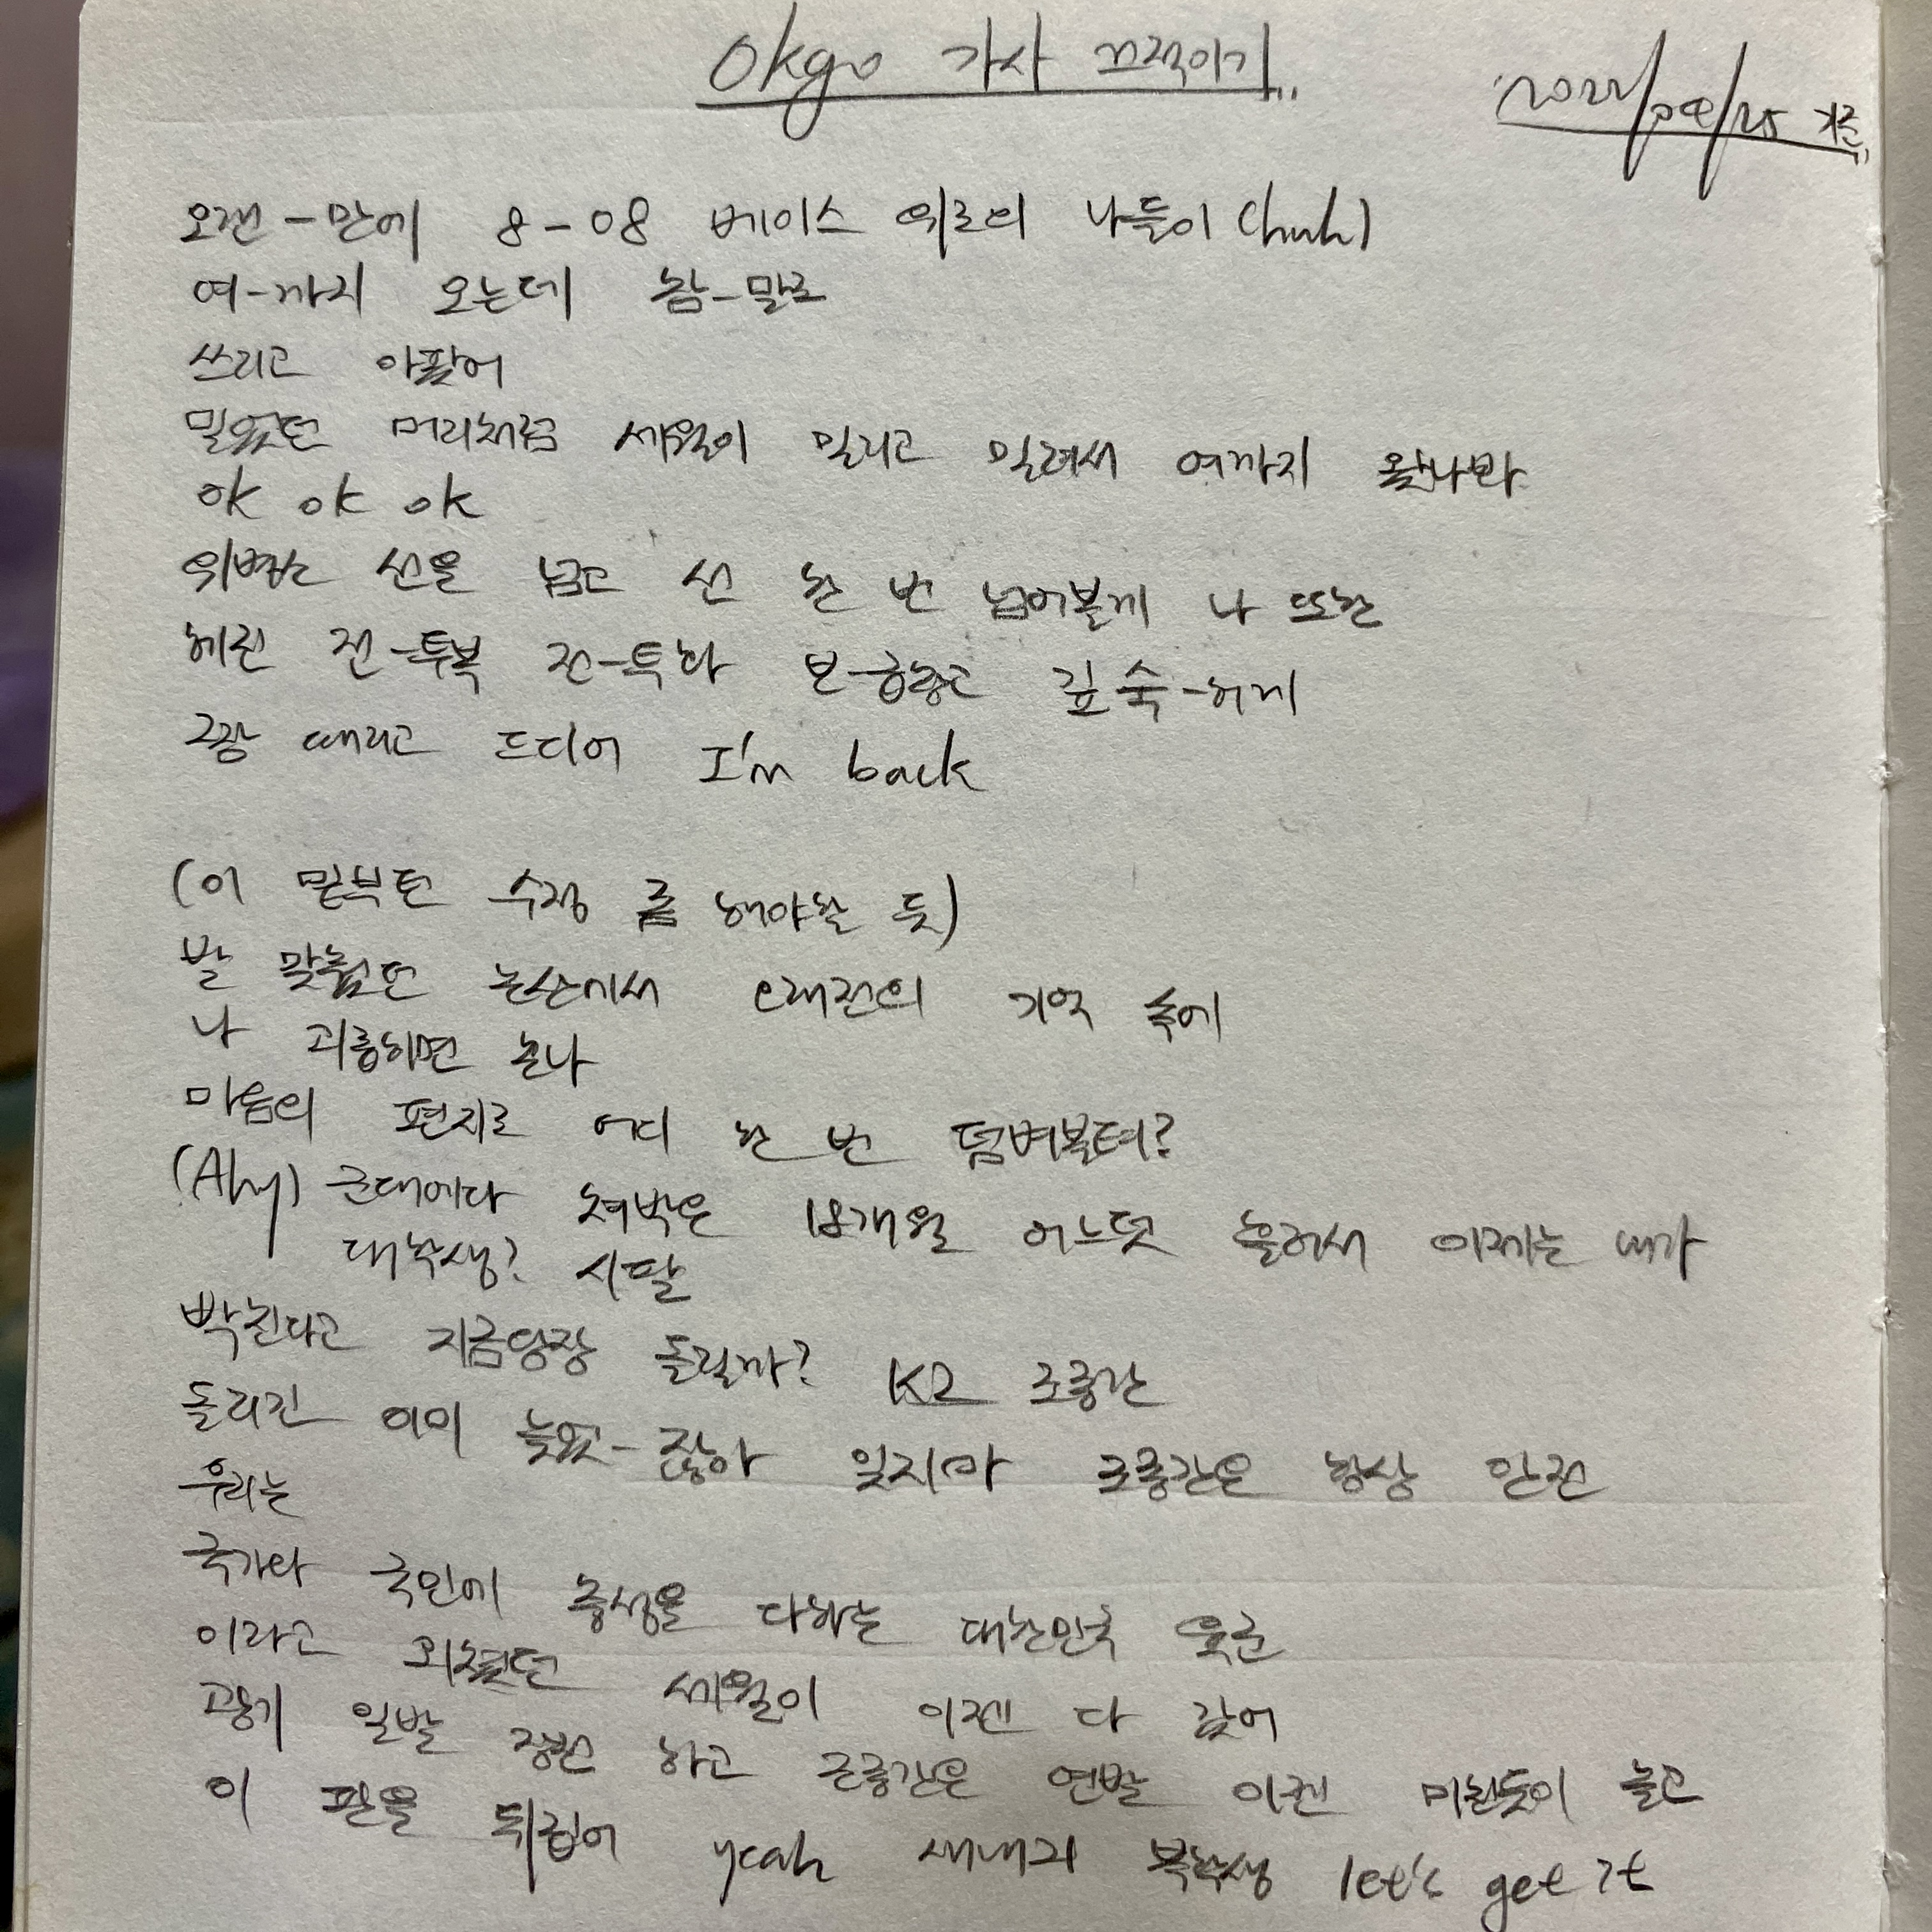 Okgo 가사 끄적이기..
기준..
오랜-만에 8-08 베이스 위로의 나들이 (huh)
여-까지 오는데 참-말로
쓰리고 아팠어
밀었던 머리처럼 세월이 밀리고 밀려서 여까지 왔나봐
ok ok ok
위병소 선을 넘고 선 한 번 넘어볼게 나 또한
헤진 전-투복 전-투화 본-중홓고 깊숙-하게
그짱 때리고 드디어 I'm back
(이 밑부턴 수정 좀 해야할 듯)
발 맞췄던 논산에서 오래전의 기억 속에
나 괴롭히면 혼나
마음의 편지로 어디 한 번 덤벼볼텨?
(Ahy) 군대에다 쳐박은 18개월 어느덧 흘러서 이제는 내가
대학생? 시팔
빡친다고 지금당장 돌릴까? K2 조종간
돌리긴 이미 늦었-잖아 잊지마 조종간은 항상 안전
우리는
국가와 국민에 충성을 다하는 대한민국 육군
이라고 외쳤던 세월이 이젠 다 갔어
광기 일발 장전 하고 조종간은 연발 이젠 미친듯이 놀고
이 판을 뒤집어 yeah 새내기 복학생 let's get it